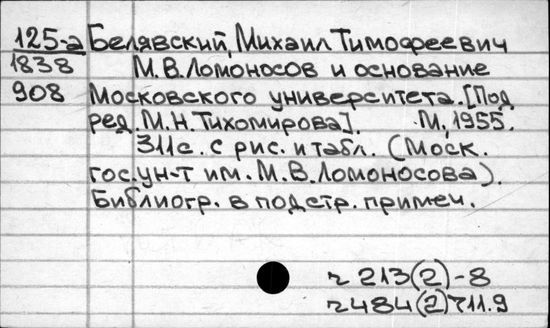 125-а Белявский, Михаил Тимофеевич
1838 М.В.Ломоносов и основание
908 Московского университета. [Под
ред. М.Н.Тихомирова]. М., 1955.
311с. с рис. и табл. (Моск.
гос. ун-т им. М.В.Ломоносова).
Библиогр. в подстр. примеч.
r 213(2)-8
r 484(2)711.9